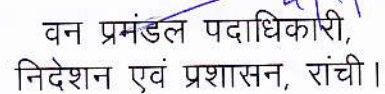 वन प्रमंडल पदाधिकारी,
निदेशन एवं प्रशासन, रांची।